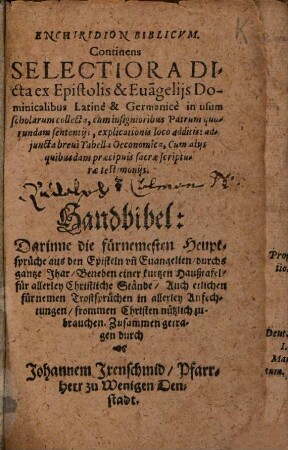 ENCHIRIDION BIBLICVM.
Continens
SELECTIORA DI-
cta ex Epistolis & Euãgelijs Do-
minicalibus Latinè & Germanicè in usum
scholarum collecta, cum insignioribus Patrum quo-
rundam sententijs, explicationis loco additis: ad-
juncta brevi Tabella Oeconomica, Cum alijs
quibusdam præcipuis sacræ scriptu-
ræ testimonijs.
Handbibel:
Darinne die fürnemesten Heupt-
sprüche aus den Episteln vñ Euangelien / durchs
gantze Jhar / Beneben einer kurtzen Haußtafel /
für allerley Christliche Stände / Auch etlichen
fürnemen Trostsprüchen in allerley Anfech-
tungen / frommen Christen nützlich zu-
brauchen. Zusammen getra-
gen durch
Johannem Irenschmid / Pfarr-
herr zu Wenigen Den-
stadt.
Prop
tio
Deut.
I.
Mar
tum.